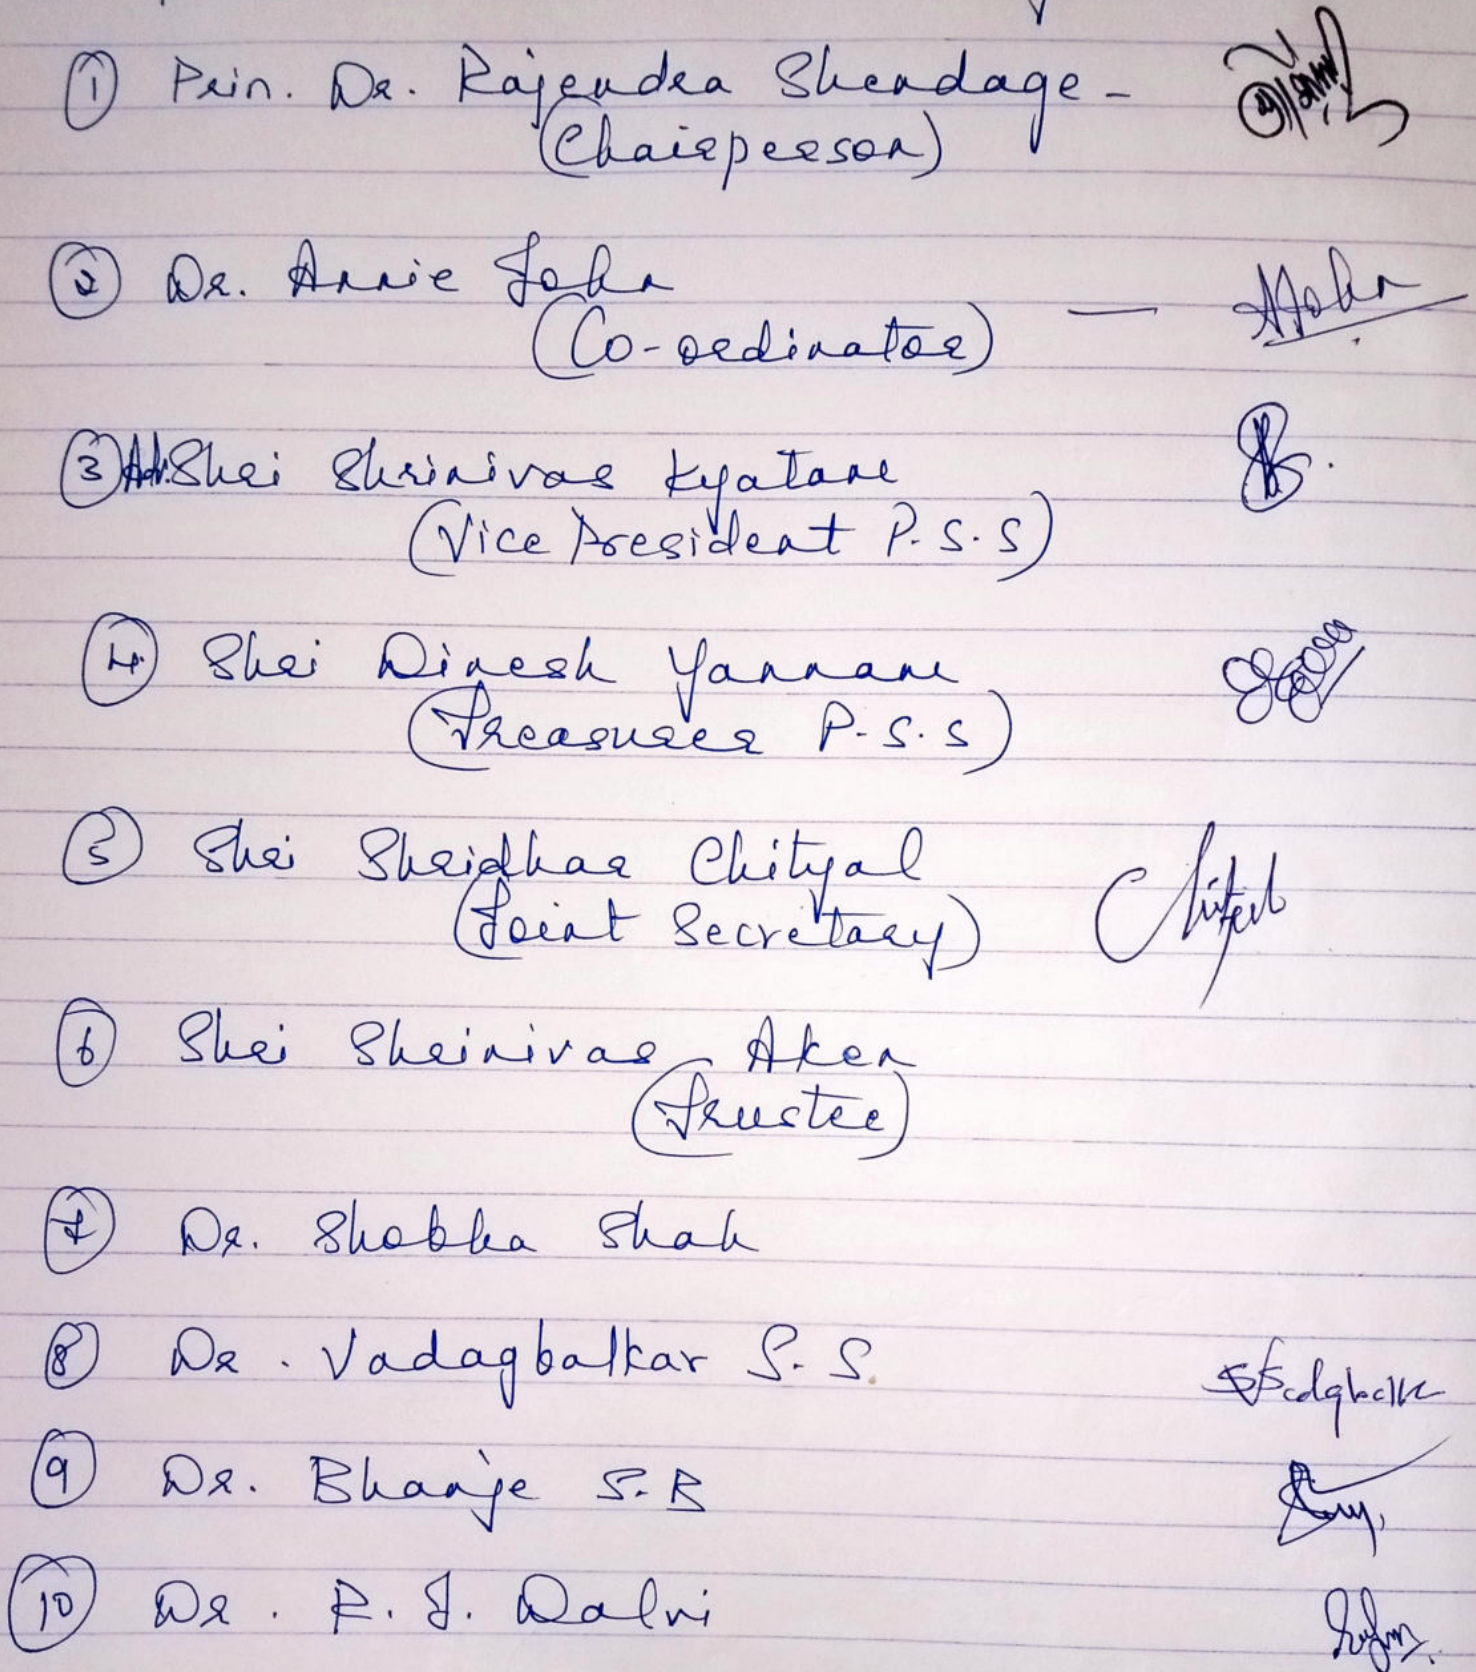 ① Prin. Dr. Rajendra Shendage -
(Chairperson)
② Dr. Annie John
(Co-ordinator) — AJohn
③ Adv. Shri Shrinivas Kyatam
(Vice President P.S.S)
④ Shri Dinesh Yannam
(Treasurer P.S.S)
⑤ Shri Shridhar Chityal
(Joint Secretary)
⑥ Shri Shrinivas Aken
(Trustee)
⑦ Dr. Shobha Shah
⑧ Dr. Vadagbalkar S.S.
⑨ Dr. Bhanje S.B
⑩ Dr. R. J. Dalvi